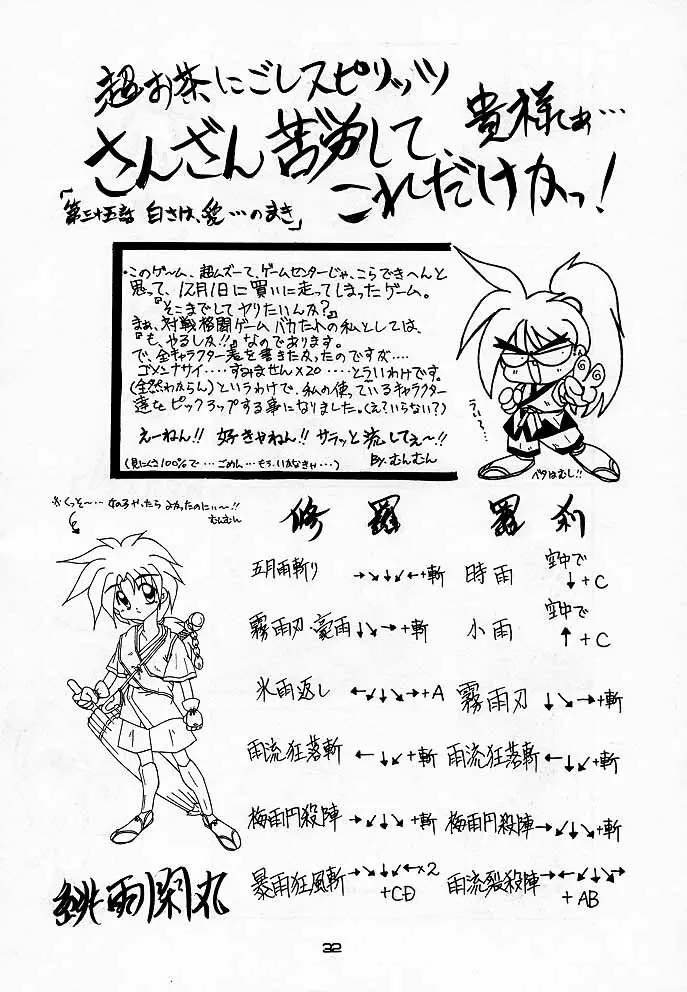 超お茶にごしスピリッツ
さんざん苦労して、
貴様しぁ…
これだけかっ！
「第三十五話 白さは、愛…のまき」
・このゲーム、超ムズーて、ゲームセンターじゃ、こらできへんと
思って、12月1日に買いに走ってしまったゲーム。
『そこまでして ヤリたいんか？』
まぁ、対戦格闘ゲーム バカたれの私としては、
『も、やるしか!!』なのであります。
で、全キャラクター表を書きたかったのですが…‥
ゴメンナサイ…‥すみません×20 …‥というわけです。
(全然わからん)というわけで、私の使っているキャラクター
達をピックアップする事になりました。(え？いらない？)
えーねん!! 好きゃねん!! サラッと流してぇ〜!!
(見にくさ100%で…ごめん…もう、いかなきゃ…)
By.むんむん
うぃ〜…
ベタはむし!!
※くっそ〜…女のコやったらよかったのにぃ〜!!
むんむん
修羅 羅刹
五月雨斬り →↘↓↙←+斬
時雨 空中で↓+C
霧雨刃・豪雨 ↓↘→+斬
小雨 空中で↑+C
氷雨返し ←↙↓↘→+A
霧雨刃 ↓↘→+斬
雨流狂落斬 ←↓↙+斬
雨流狂落斬 ←↓↙+斬
梅雨円殺陣 →↙↓↘+斬
梅雨円殺陣 →↙↓↘+斬
暴雨狂風斬 →↘↓↙←×2+CD
雨流裂殺陣 →←↙↓↘→+AB
緋雨閑丸
32